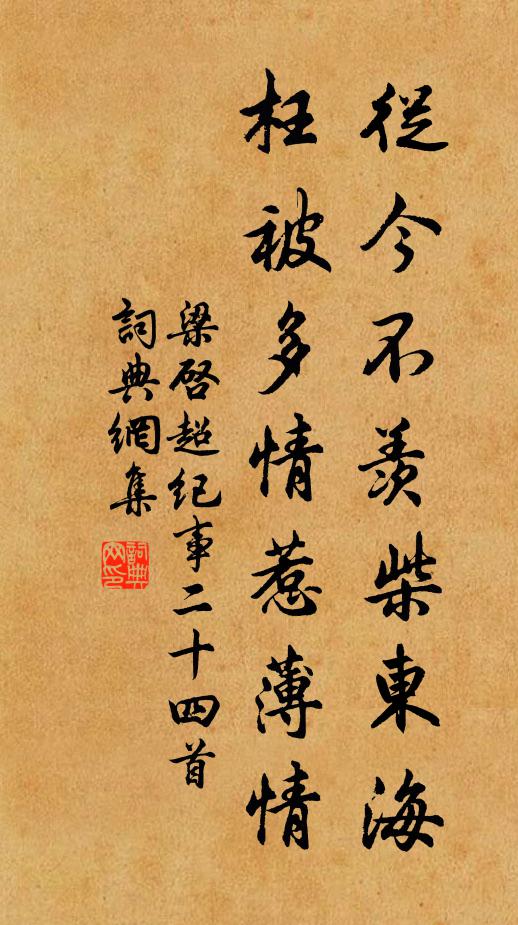 從今不羨柴東海
枉被多情惹薄情
梁啓超紀事二十四首
詞典網集
詞典
网印